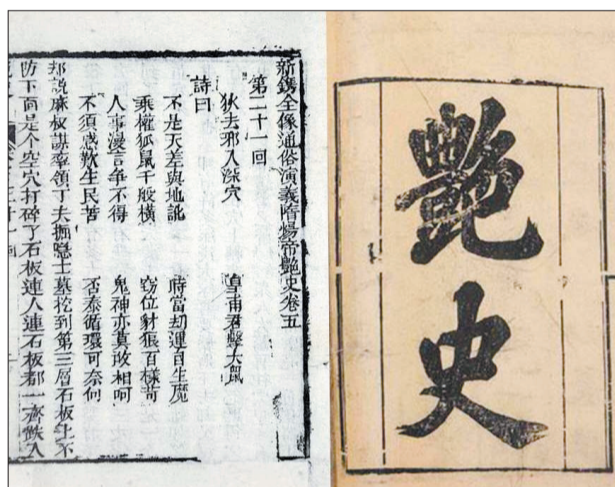 艷史
新鐫全像通俗演義隋煬帝艷史卷五
第二十一回
狄去邪入深穴 皇甫君擊大鼠
詩曰
不是天差與地訛 時當劫運自生魔
乘權狐鼠千般橫 竊位豺狼百樣苛
人事漫言爭不得 鬼神亦莫敢相呵
不須感歎生民苦 否泰循環可奈何
却說麻叔謀率領丁夫掘隱士墓挖到第三層石板上不
防下面是个空穴打碎了石板連人連石板都一齊跌入